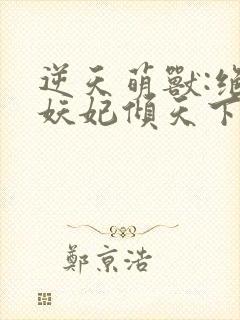 逆天萌獸:絕
妖妃傾天下
鄭京浩